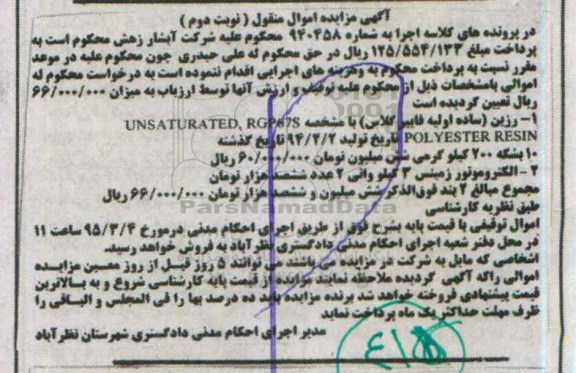 آگهی مزایده اموال منقول ( نوبت دوم )
در پرونده های کلاسه اجرا به شماره ۹۴۰۴۵۸ محکوم علیه شرکت آبشار زهش محکوم است به
پرداخت مبلغ ۱۲۵/۵۵۴/۱۳۳ ریال در حق محکوم له علی حیدری چون محکوم علیه در موعد
مقرر نسبت به پرداخت محکوم به وهزینه های اجرایی اقدام ننموده است به درخواست محکوم له
اموالی بامشخصات ذیل از محکوم علیه توقیف و ارزش آنها توسط ارزیاب به میزان ۶۶/۰۰۰/۰۰۰
ریال تعیین گردیده است
۱- رزین (ساده اولیه فایبر گلاس) با مشخصه UNSATURATED, RGP87S
POLYESTER RESIN تاریخ تولید ۹۴/۲/۲ تاریخ گذشته
۱۰ بشکه ۲۰۰ کیلو گرمی شش میلیون تومان ۶۰/۰۰۰/۰۰۰ ریال
۲- الکتروموتور زیمنس ۳ کیلو واتی ۲ عدد ششصد هزار تومان
مجموع مبالغ ۲ بند فوق الذکر شش میلیون و ششصد هزار تومان ۶۶/۰۰۰/۰۰۰ ریال
طبق نظریه کارشناسی
ParsNamadData
اموال توقیفی با قیمت پایه بشرح فوق از طریق اجرای احکام مدنی درمورخ ۹۵/۳/۴ ساعت ۱۱
در محل دفتر شعبه اجرای احکام مدنی دادگستری نظرآباد به فروش خواهد رسید.
اشخاصی که مایل به شرکت در مزایده می باشند می توانند ۵ روز قبل از روز معین مزایده
اموالی راکه آگهی گردیده ملاحظه نمایند مزایده از قیمت پایه کارشناسی شروع و به بالاترین
قیمت پیشنهادی فروخته خواهد شد برنده مزایده باید ده درصد بها را فی المجلس و الباقی را
ظرف مهلت حداکثر یک ماه پرداخت نماید
مدیر اجرای احکام مدنی دادگستری شهرستان نظرآباد